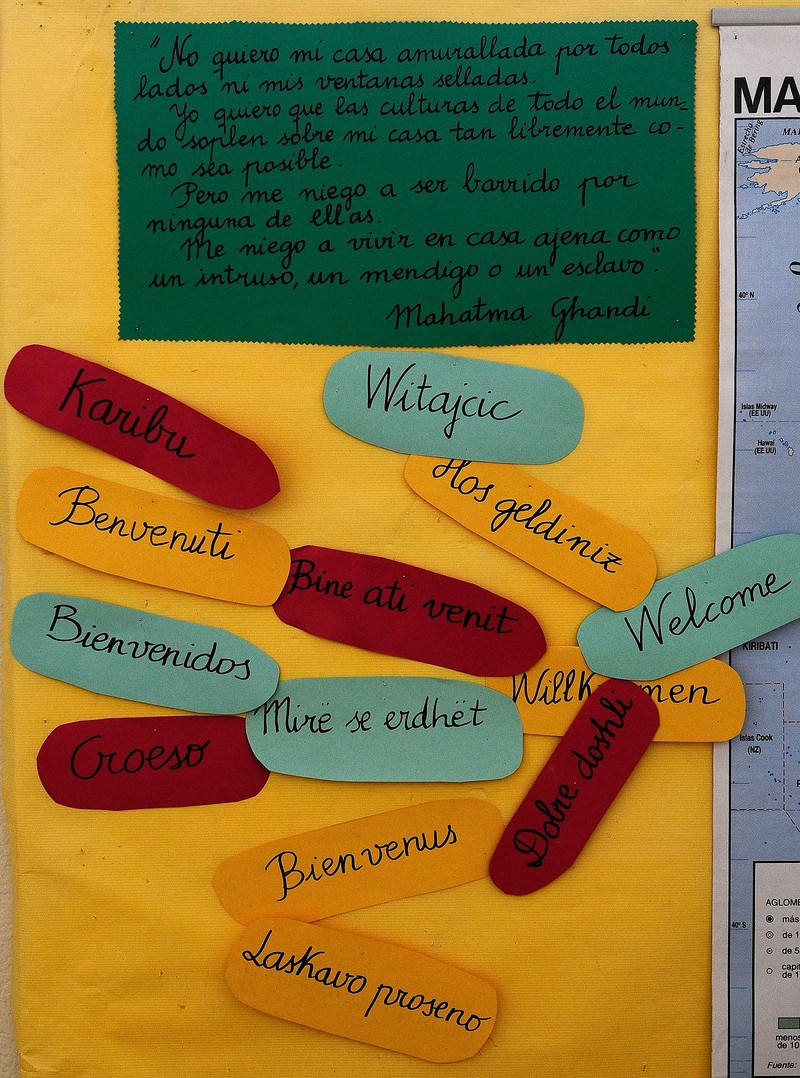 "No quiero mi casa amurallada por todos
lados ni mis ventanas selladas.
Yo quiero que las culturas de todo el mun-
do soplen sobre mi casa tan libremente co-
mo sea posible.
Pero me niego a ser barrido por
ninguna de ellas.
Me niego a vivir en casa ajena como
un intruso, un mendigo o un esclavo".
Mahatma Ghandi
Karibu
Witajcic
Hos geldiniz
Benvenuti
Bine ati venit
Welcome
Bienvenidos
Mirë se erdhët
Willk men
Croeso
Dobre doshli
Bienvenus
Laskavo proseno
MA
Estrecho
de Bering
40° N
Islas Midway
(EE UU)
Hawai
(EE UU)
KIRIBATI
Islas Cook
(NZ)
40° S
AGLOME
más
de 1
de 5
capit
de 1
menos
de 10
Fuente: